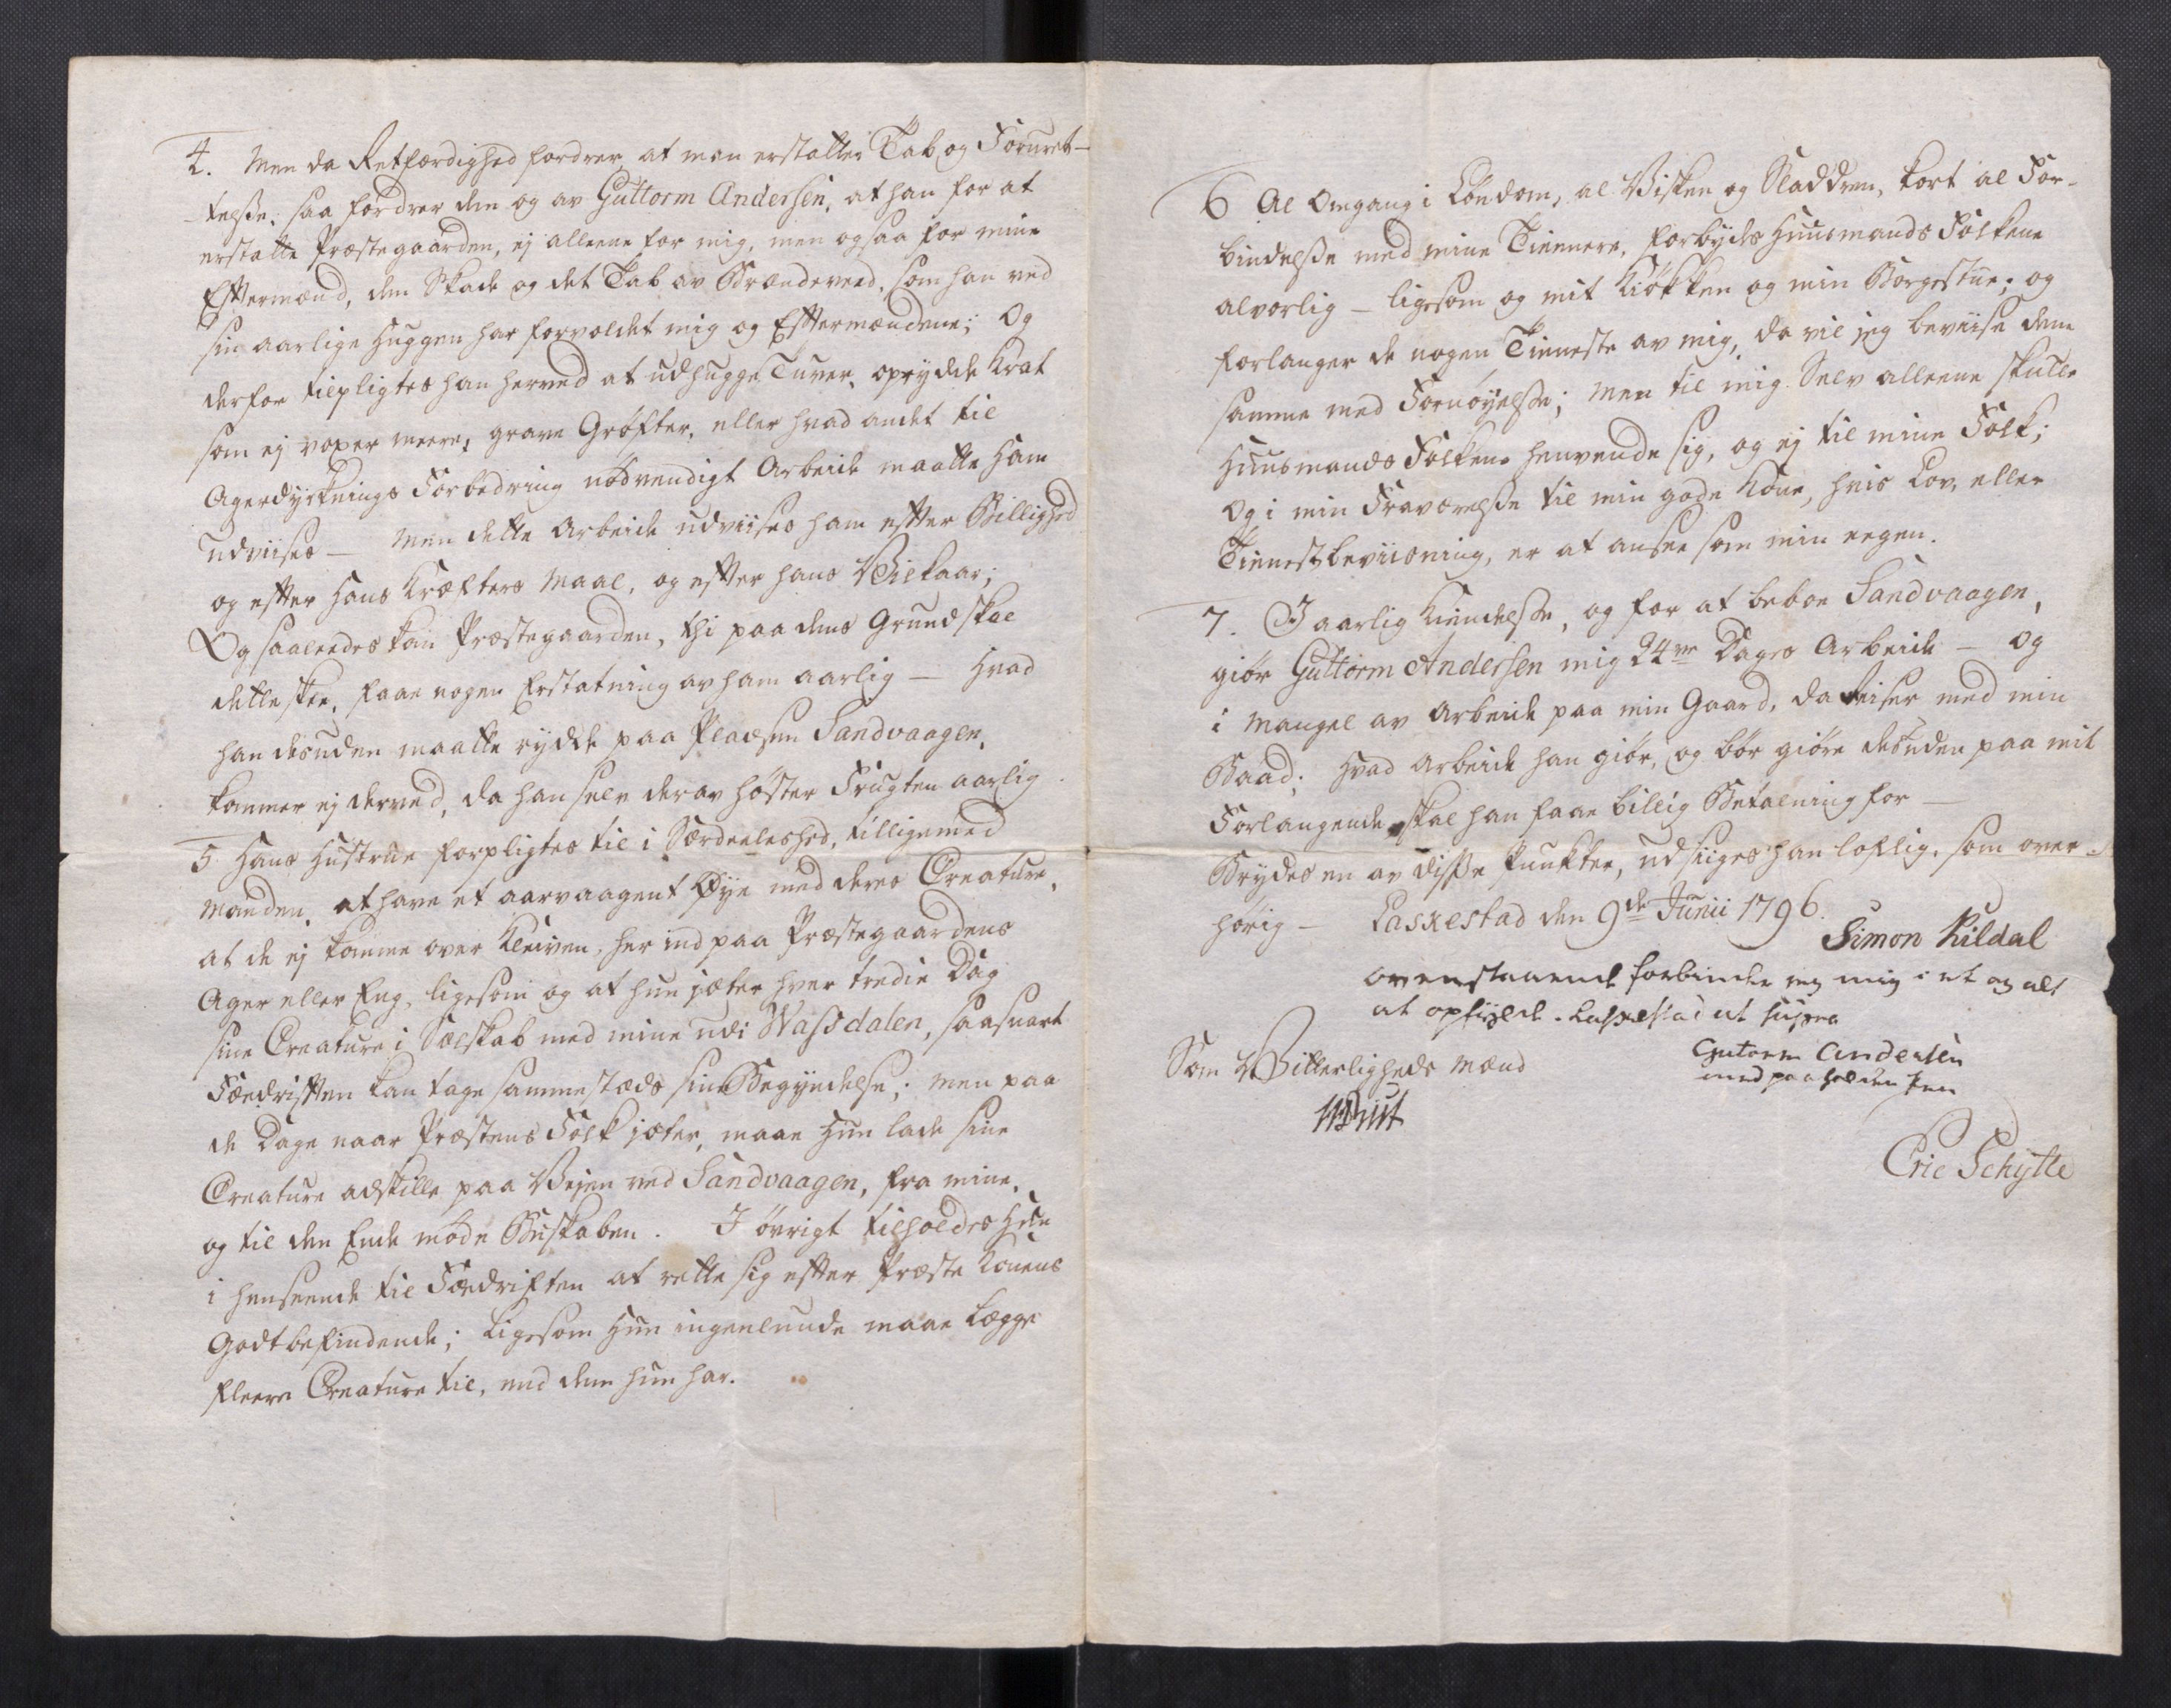 4. Men da Retfærdighed fordrer at man erstatter Tab og Foruret-
telse, saa fordrer den og av Guttorm Andersen, at han for at
erstatte Præstegaarden, ej alleene for mig, men ogsaa for mine
Eftermænd, den Skade og det Tab av Brændeveed, som han ved
sin aarlige Huggen har forvoldet mig og Eftermændene; Og
derfor tilpligtes han herved at udhugge Tuver, oprydde Krat
som ej voxer meere, grave Grøfter, eller hvad andet til
Agerdyrknings Forbedring nødvendigt Arbeide maatte Ham
udviises — Men dette Arbeide udviises ham efter Billighed
og efter Hans Kræfters Maal, og efter hans Vilkaar;
Og saaleedes kan Præstegaarden, thi paa dens Grund skal
dette skee, faae nogen Erstatning av ham aarlig — Hvad
han desuden maatte rydde paa Pladsen Sandvaagen,
kommer ej derved, da han selv derav høster Frugten aarlig.
5 Hans Hustrue forpligtes til i Særdeeleshed, tilligemed
Manden, at have et aarvaagent Øye med deres Creature,
at de ej komme over Kleiven, her ind paa Præstegaardens
Ager eller Eng, ligesom og at hun jæter hver tredie Dag
sine Creature i Sælskab med mine udi Wassdalen, saasnart
Fædriften kan tage sammestæds sin Begyndelse; men paa
de Dage naar Præstens Folk jæter, maae Hun lade sine
Creature adskille paa Vejen ved Sandvaagen, fra mine,
og til den Ende møde Buskaben. I øvrigt tilholdes Hun
i henseende til Fædriften at rette sig efter Præste Konens
Godtbefindende; Ligesom Hun ingenlunde maae Lægge
fleere Creature til, end dem hun har.
6 Al Omgang i Løndom, al Visken og Sladdren, kort al For-
bindelse med mine Tiennere, forbydes Huusmands Folkene
alvorlig — ligesom og mit Kiøkken og min Borgestue; og
forlanger de nogen Tienneste av mig, da vil jeg beviise dem
samme med Fornøyelse; Men til mig Selv alleene skulle
Huusmands Folkene henvende sig, og ej til mine Folk;
Og i min Fraværelse til min gode Kone, hvis Lov, eller
Tienestbeviisning, er at ansee som min eegen.
7. I aarlig Kiendelse, og for at beboe Sandvaagen,
giør Guttorm Andersen mig 24ve Dages Arbeide — og
i Mangel av Arbeide paa min Gaard, da Reiser med min
Baad; Hvad Arbeide han giør, og bør giøre desuden paa mit
Forlangende skal han faae billig Betalning for —
Brydes en av disse Punkter, udsiiges han loflig, som over-
hørig — Laskestad den 9de Junii 1796.
Simon Kildal
Ovenstaaende forbinder jeg mig i et og alt
at opfylde. Laskestad ut supra
Gutorm Andersen
med paaholden Pen
Som Vitterligheds Mænd
Eric Schytte